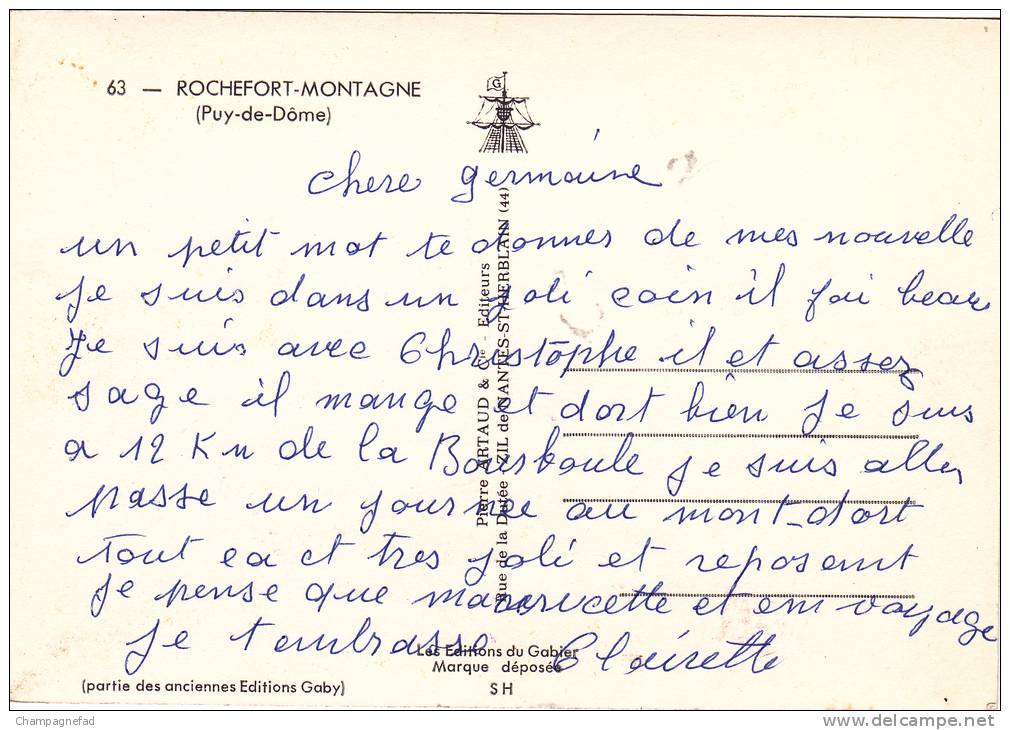 63 — ROCHEFORT-MONTAGNE
(Puy-de-Dôme)
G
chere germaine
un petit mot te donner de mes nouvelle
Je suis dans un joli coin il fai beau
Je suis avec Christophe il et assez
sage il mange et dort bien Je suis
a 12 Km de la Bourboule je suis aller
passe un journee au mont-dort
Tout ea et tres joli et reposent
je pense que mauricette et en voyage
Je t'embrasse Clairette
Pierre ARTAUD & Cie - Editeurs
Rue de la Dutée - ZIL de NANTES-ST-HERBLAIN (44)
Les Editions du Gabier
Marque déposée
(partie des anciennes Editions Gaby)
SH
Champagnefad
www.delcampe.net